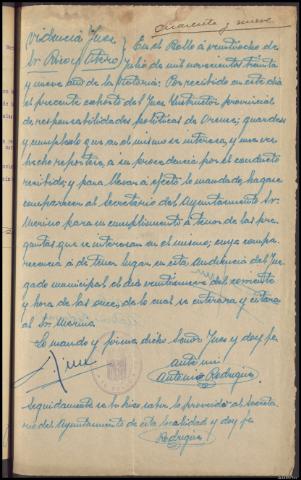 Cuarenta y nueve
Providencia Juez
Sr Perez Otero
En el Bollo a veintiocho de
Julio de mil novecientos treinta
y nueve año de la Victoria. Por recibido en este dia
el precente exhorto del Juez Instructor provincial
de responsabilidades politicas de Orense; guardese
y cumplase lo que en el mismo se interesa, y una vez
hecho reportese a su procedencia por el conducto
recibido; y para llevar a efecto lo mandado hagase
comparecer al Secretario del Ayuntamiento Sr.
Merino para su cumplimiento a tenor de las pre-
guntas que se interesan en el mismo; cuya compa-
recencia a de tener lugar en esta Audiencia del Juz-
gado municipal el dia veintinueve del corriente
y hora de las once, de lo cual se enterara y citara
al Sr. Merino.
Lo mando y firma dicho Señor Juez y doy fe
ante mi
Antonio Rodriguez
Seguidamente se la hice saber la providencia al Secreta-
rio del Ayuntamiento de esta localidad y doy fe
Rodriguez